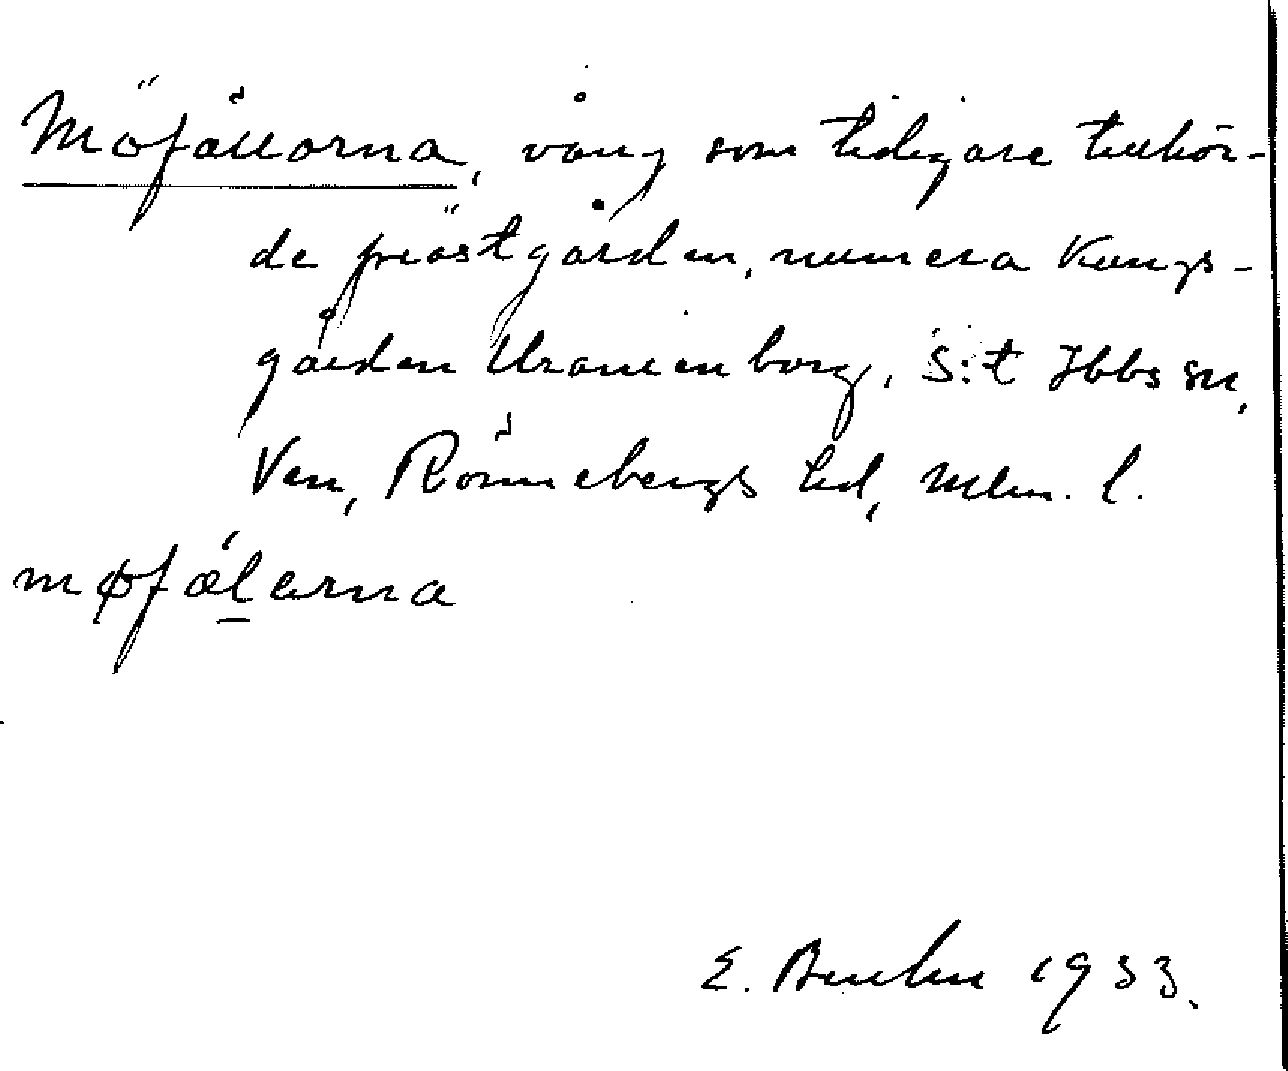 Möfällorna, vång som tidigare tillhör-
de prästgården, numera Kungs-
gården Uranienborg, S:t Ibbs sn,
Ven, Rönnebergs hd, Mlm. l.
møfælarna
E. 1933.